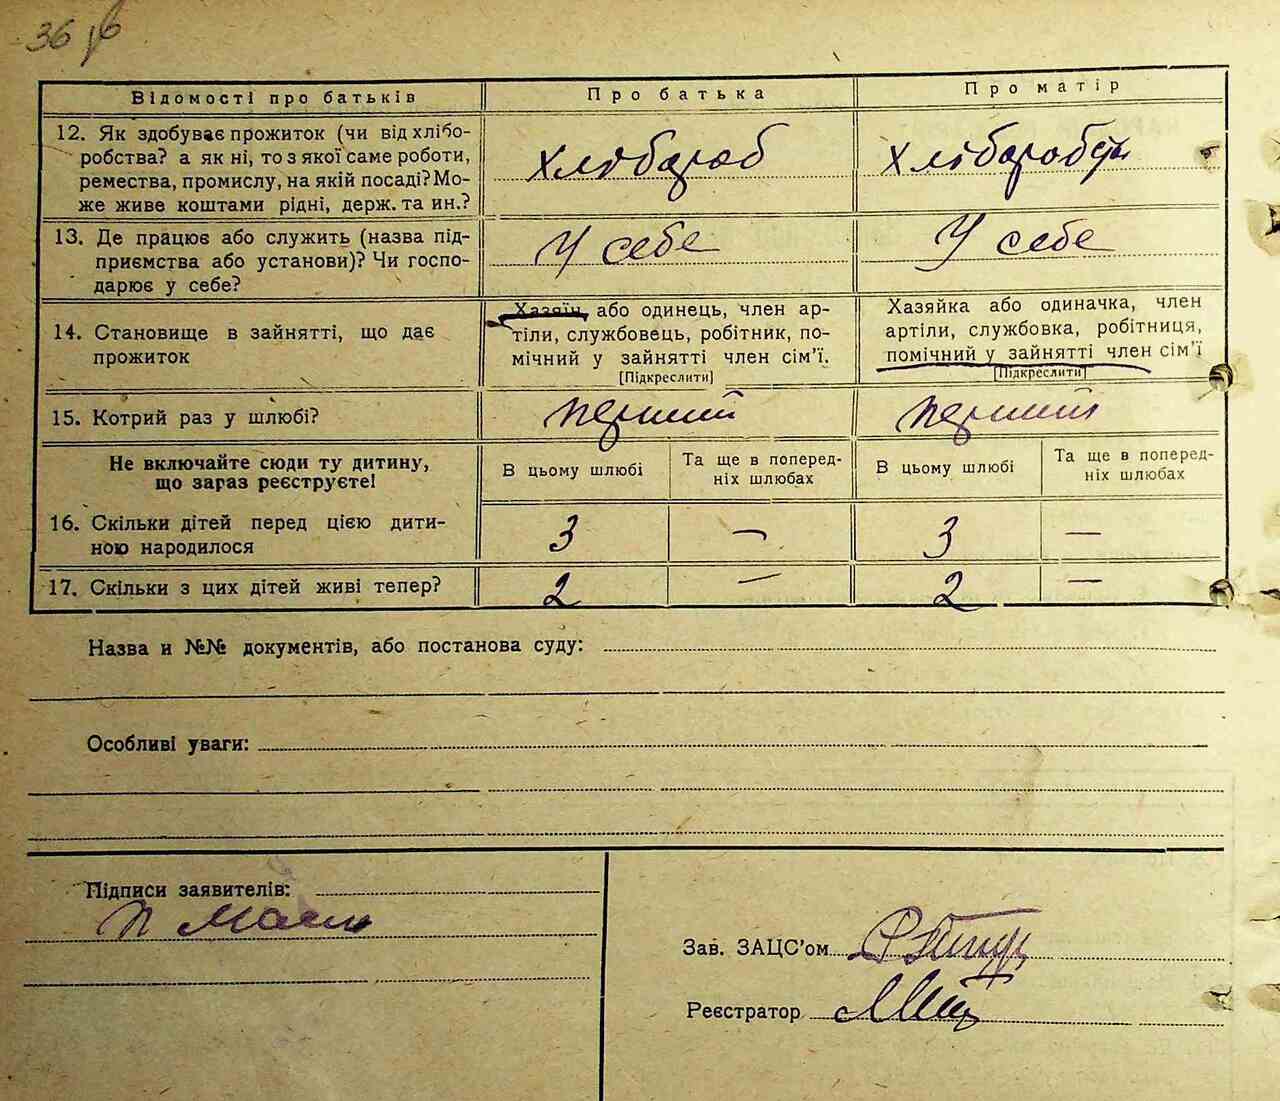 36
Відомості про батьків
Про батька
Про матір
12. Як здобуває прожиток (чи від хлібо-
робства? а як ні, то з якої саме роботи,
ремества, промислу, на якій посаді? Мо-
же живе коштами рідні, держ. та ин.?
Хлібороб
Хліборобство
13. Де працює або служить (назва під-
приємства або установи)? Чи госпо-
дарює у себе?
У себе
У себе
14. Становище в зайнятті, що дає
прожиток
Хазяїн, або одинець, член ар-
тіли, службовець, робітник, по-
мічний у зайнятті член сім’ї.
[Підкреслити]
Хазяйка або одиначка, член
артіли, службовка, робітниця,
помічний у зайнятті член сім’ї
[Підкреслити]
15. Котрий раз у шлюбі?
перший
перший
Не включайте сюди ту дитину,
що зараз реєструєте!
В цьому шлюбі
Та ще в поперед-
ніх шлюбах
В цьому шлюбі
Та ще в поперед-
ніх шлюбах
16. Скільки дітей перед цією дити-
ною народилося
3
—
3
—
17. Скільки з цих дітей живі тепер?
2
—
2
—
Назва и №№ документів, або постанова суду:
Особливі уваги:
Підписи заявителів:
Зав. ЗАЦС’ом
Реєстратор